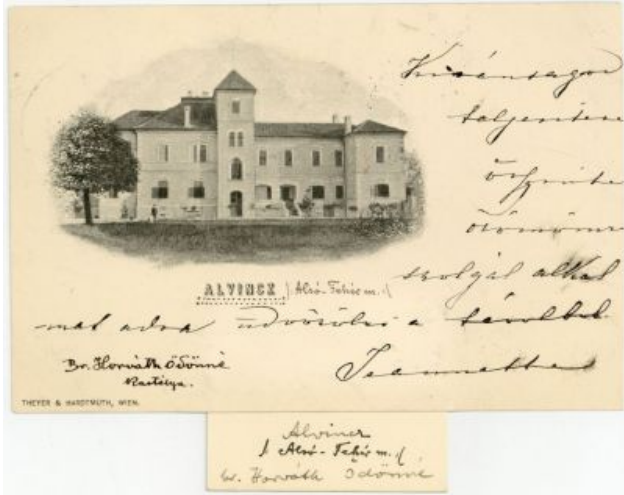 Kívánságod
teljesítése
őszinte
örömömre
szolgál alkal
ALVINCZ / Alsó-Fehér m. /
mat adva üdvözölni a távolból
Br. Horváth Ödönné
Kastélya.
Jeannette
THEYER & HARDTMUTH, WIEN.
Alvincz
/ Alsó-Fehér m. /
br. Horváth Ödönné